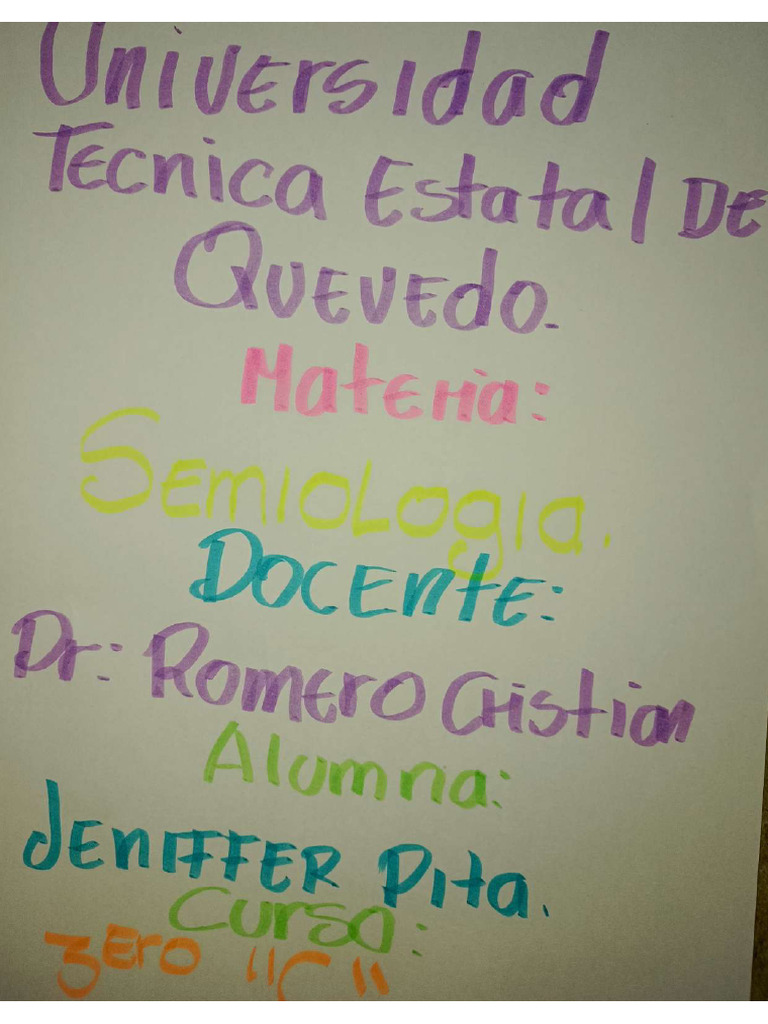 Universidad
Tecnica Estatal De
Quevedo.
Materia:
Semiologia.
Docente:
Dr: Romero Cristian
Alumna:
Jeniffer Pita.
Curso:
3ero "C"